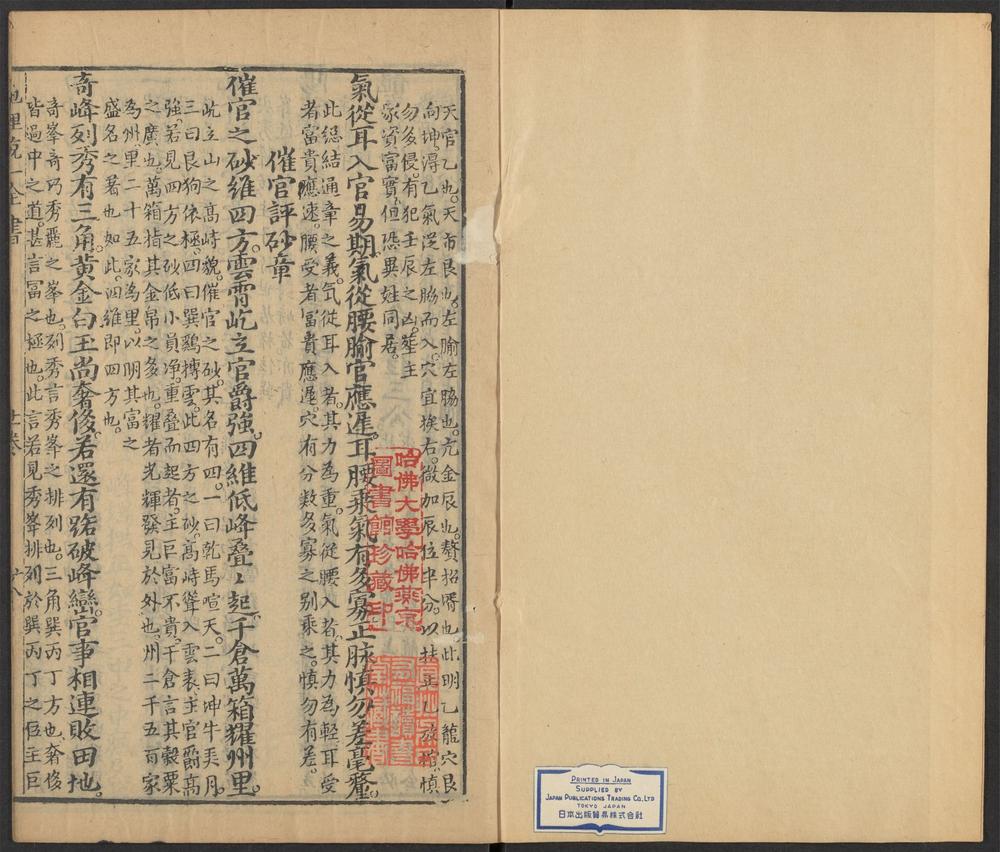 天官乙也天市艮也左腧左脇也亢金辰也贅招壻也此明乙龍穴艮
向坤得乙氣從左脇而入穴宜挨右微加辰位中分以扶正乙放棺慎
勿多侵有犯壬辰之凶葬主
家資富實但恐異姓同居
氣從耳入官易期氣從腰腧官應遲耳腰乘氣有多寡正脉慎勿差毫釐
此總結通章之義氣從耳入者其力為重氣從腰入者其力為輕耳受
者富貴應速腰受者富貴應遲穴有分數多寡之别乘之慎勿有差
催官評砂章
催官之砂維四方雲霄屹立官爵強四維低峰叠〻起千倉萬箱耀州里
屹立山之髙峙貌催官之砂其名有四一曰乾馬喧天二曰坤牛吴月
三曰艮狗依極四曰巽鷄摶雲此四方之砂髙峙聳入雲表主官爵髙
強若見四方之砂低小員净重疊而起者主巨富不貴千倉言其穀粟
之廣也萬箱指其金帛之多也耀者光輝發見於外也州二千五百家
為州里二十五家為里以明其富之
盛名之著也如此四維即四方也
奇峰列秀有三角黄金白玉尚奢侈若還有路破峰巒官事相連敗田地
奇峯奇巧秀麗之峯也列秀言秀峯之排列也三角巽丙丁方也奢侈
皆過中之道甚言富之極也此言若見秀峯排列於巽丙丁之位主巨
地理統一全書
十卷
哈佛大學哈佛燕京
圖書館珍藏印
PRINTED IN JAPAN
SUPPLIED BY
JAPAN PUBLICATIONS TRADING CO., LTD
TOKYO JAPAN
日本出版貿易株式会社